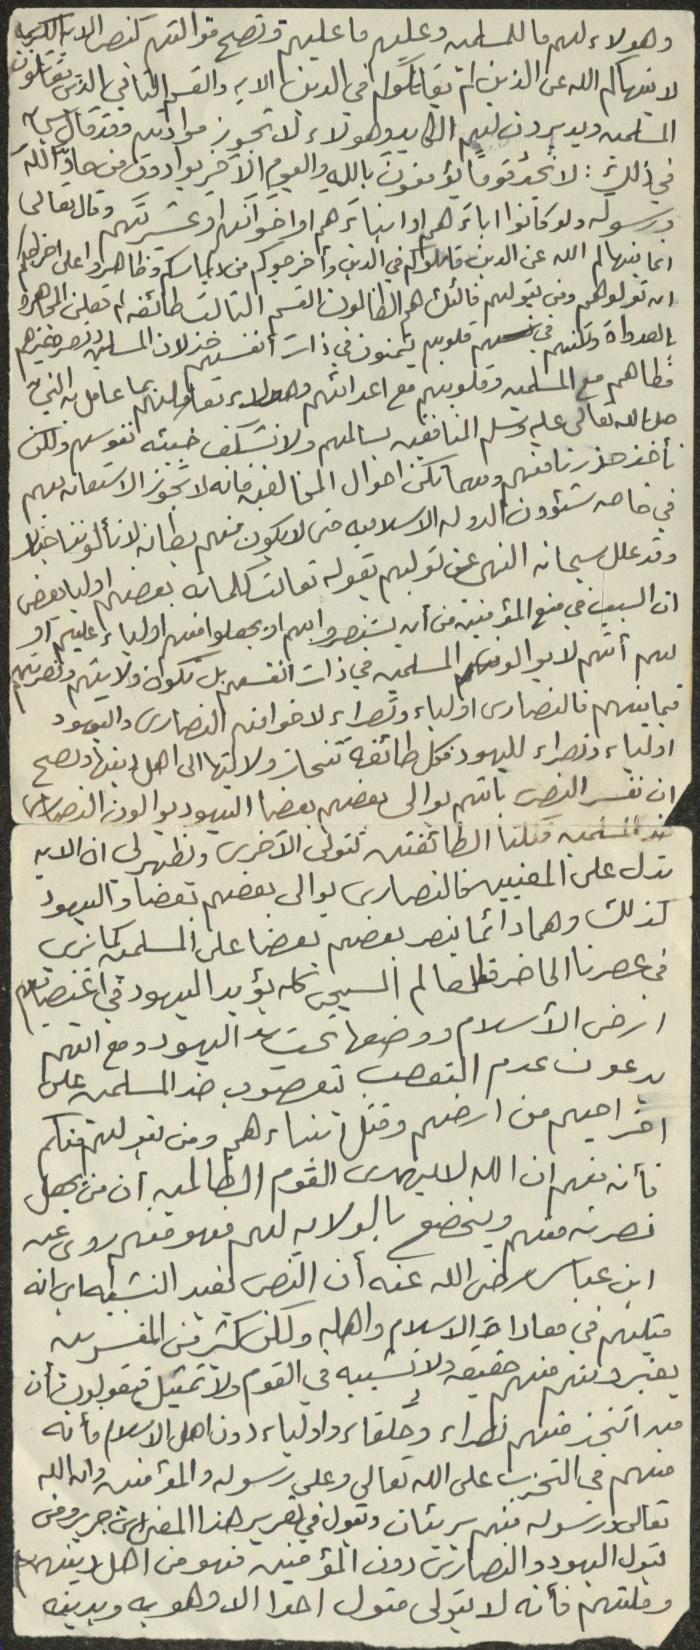 وهولاء لهم ما للمسلمين وعليهم ما عليهم وتصح موالتهم كنص الاية الكريمة
لا ينهاكم الله عن الذين لم يقاتلوكم في الدين الاية والقسم الثاني الذين يقاتلون
المسلمين ويدبرون لهم المكايد وهولاء لا تجوز موادتهم وقد قال سبحانه
في ذلك : لا تجد قوما يؤمنون بالله واليوم الآخر يوادون من حاد الله
ورسوله ولو كانوا اباءهم او ابناءهم او اخوانهم او عشيرتهم وقال تعالى
انما ينهاكم الله عن الذين قاتلوكم في الدين وأخرجوكم من دياركم وظاهروا على اخراجكم
ان تولوهم ومن يتولهم فائلئك هم الظالمون القسم الثالث طائفه لم تعلن المجاهرة
بالعداوة ولكنهم في قلوبهم يتمنون في ذات أنفسهم خذلان المسلمين ونصر غيرهم
فظاهرهم مع المسلمين وقلوبهم مع اعدائهم وهولاء نعاملهم بما عامل به النبي
صلى الله تعالى عليه وسلم المنافقين نسالمهم ولا نستكشف خبيئه نفوسهم ولكن
نأخذ حذرنا منهم ومهما تكن احوال المخالفين فانه لا تجوز الاستعانه بهم
في خاصه شئوون الدوله الاسلاميه حتى لا يكون منهم بطانه لا تألوننا خبالا
وقد علل سبحانه النهى عن توليهم بقوله تعالت كلماته بعضهم اوليا بعض
ان السبب في منع المؤمنين من أن يستنصروا بهم او يجعلوا منهم اولياء عليهم او
لهم أنهم لا يوالون المسلمين في ذات انفسهم بل تكون ولايتهم ونصرتهم
فيما بينهم فالنصارى اولياء ونصراء لاخوانهم النصارى واليهود
اولياء ونصراء لليهود فكل طائفة تنحاز ولايتها الى اهل دينها ويصح
ان نفسر النص بانهم يوالى بعضهم بعضا اليهود يوالون النصارى
ضد المسلمين فكلتا الطائفتين تتولى الآخرى ويظهر لي ان الايه
تدل على المعنيين فالنصارى يوالى بعضهم بعضا واليهود
كذلك وهما دائما ينصر بعضهم بعضا على المسلمين كما نرى
في عصرنا الحاضر فالعالم المسيحي كله يؤيد اليهود في اغتصابهم
ارض الأسلام ووضعها تحت يد اليهود ومع انهم
يدعون عدم التعصب تعصبوا ضد المسلمين على
اخراجهم من ارضهم وقتل ابناءهم ومن يتولهم منكم
فأنه منهم ان الله لا يهدى القوم الظالمين أن من يجعل
نصرته منهم ويخضع بالولايه لهم فهو منهم روى عن
ابن عباس رضى الله عنه أن النص يفيد التشبيه اى انه
مثلهم في معاداة الاسلام واهله ولكن كثير من المفسرين
يعتبرونه منهم حقيقه ولا تشبيه في القوم ولا تمثيل فيقولون أن
من اتخذ منهم نصراء وحلفاء واولياء دون اهل الاسلام فأنه
منهم في التحزب على الله تعالى وعلى رسوله والمؤمنين وان الله
تعالى ورسوله منهم بريئان ويقول في تقرير هذا المعنى ابن جرير ومن
يتول اليهود والنصارى دون المؤمنين فهو من اهل دينهم
وملتهم فأنه لا يتولى متول احدا الا وهو به وبدينه